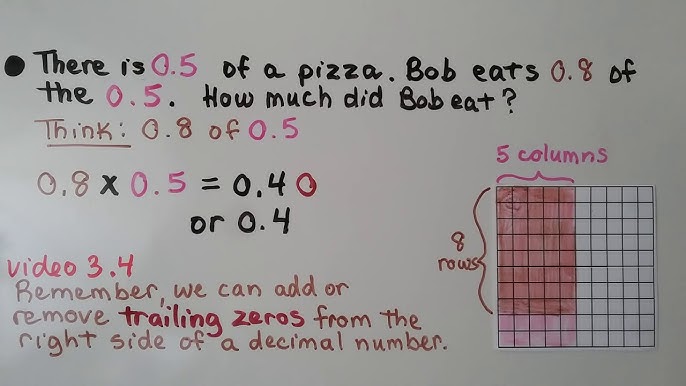 • There is 0.5 of a pizza. Bob eats 0.8 of
the 0.5. How much did Bob eat?
Think: 0.8 of 0.5
0.8 x 0.5 = 0.40
or 0.4
5 columns
8
rows
video 3.4
Remember, we can add or
remove trailing zeros from the
right side of a decimal number.